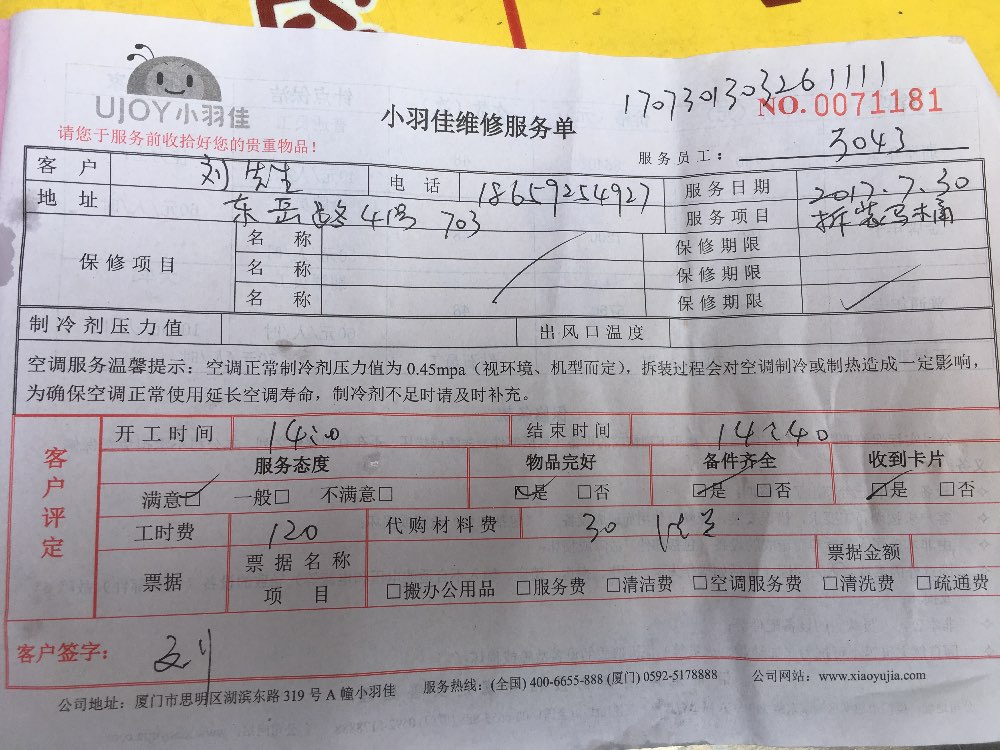 1707301303261111
UJOY小羽佳
小羽佳维修服务单
NO. 0071181
请您于服务前收拾好您的贵重物品！
服务员工： 3043
客户 刘先生 电话 18659254927 服务日期 2017.7.30
地址 东岳路41号 703 服务项目 拆装马桶
保修项目 名称 保修期限
名称 保修期限
名称 保修期限
制冷剂压力值 出风口温度
空调服务温馨提示：空调正常制冷剂压力值为 0.45mpa（视环境、机型而定），拆装过程会对空调制冷或制热造成一定影响，
为确保空调正常使用延长空调寿命，制冷剂不足时请及时补充。
客户评定
开工时间 14:00 结束时间 14:40
服务态度 物品完好 备件齐全 收到卡片
满意☑ 一般□ 不满意□ ☑是 □否 ☑是 □否 ☑是 □否
工时费 120 代购材料费 30
票据 票据名称 票据金额
项目 □搬办公用品 □服务费 □清洁费 □空调服务费 □清洗费 □疏通费
客户签字： 刘
公司地址：厦门市思明区湖滨东路 319 号 A 幢小羽佳 服务热线：(全国) 400-6655-888 (厦门) 0592-5178888 公司网站：www.xiaoyujia.com